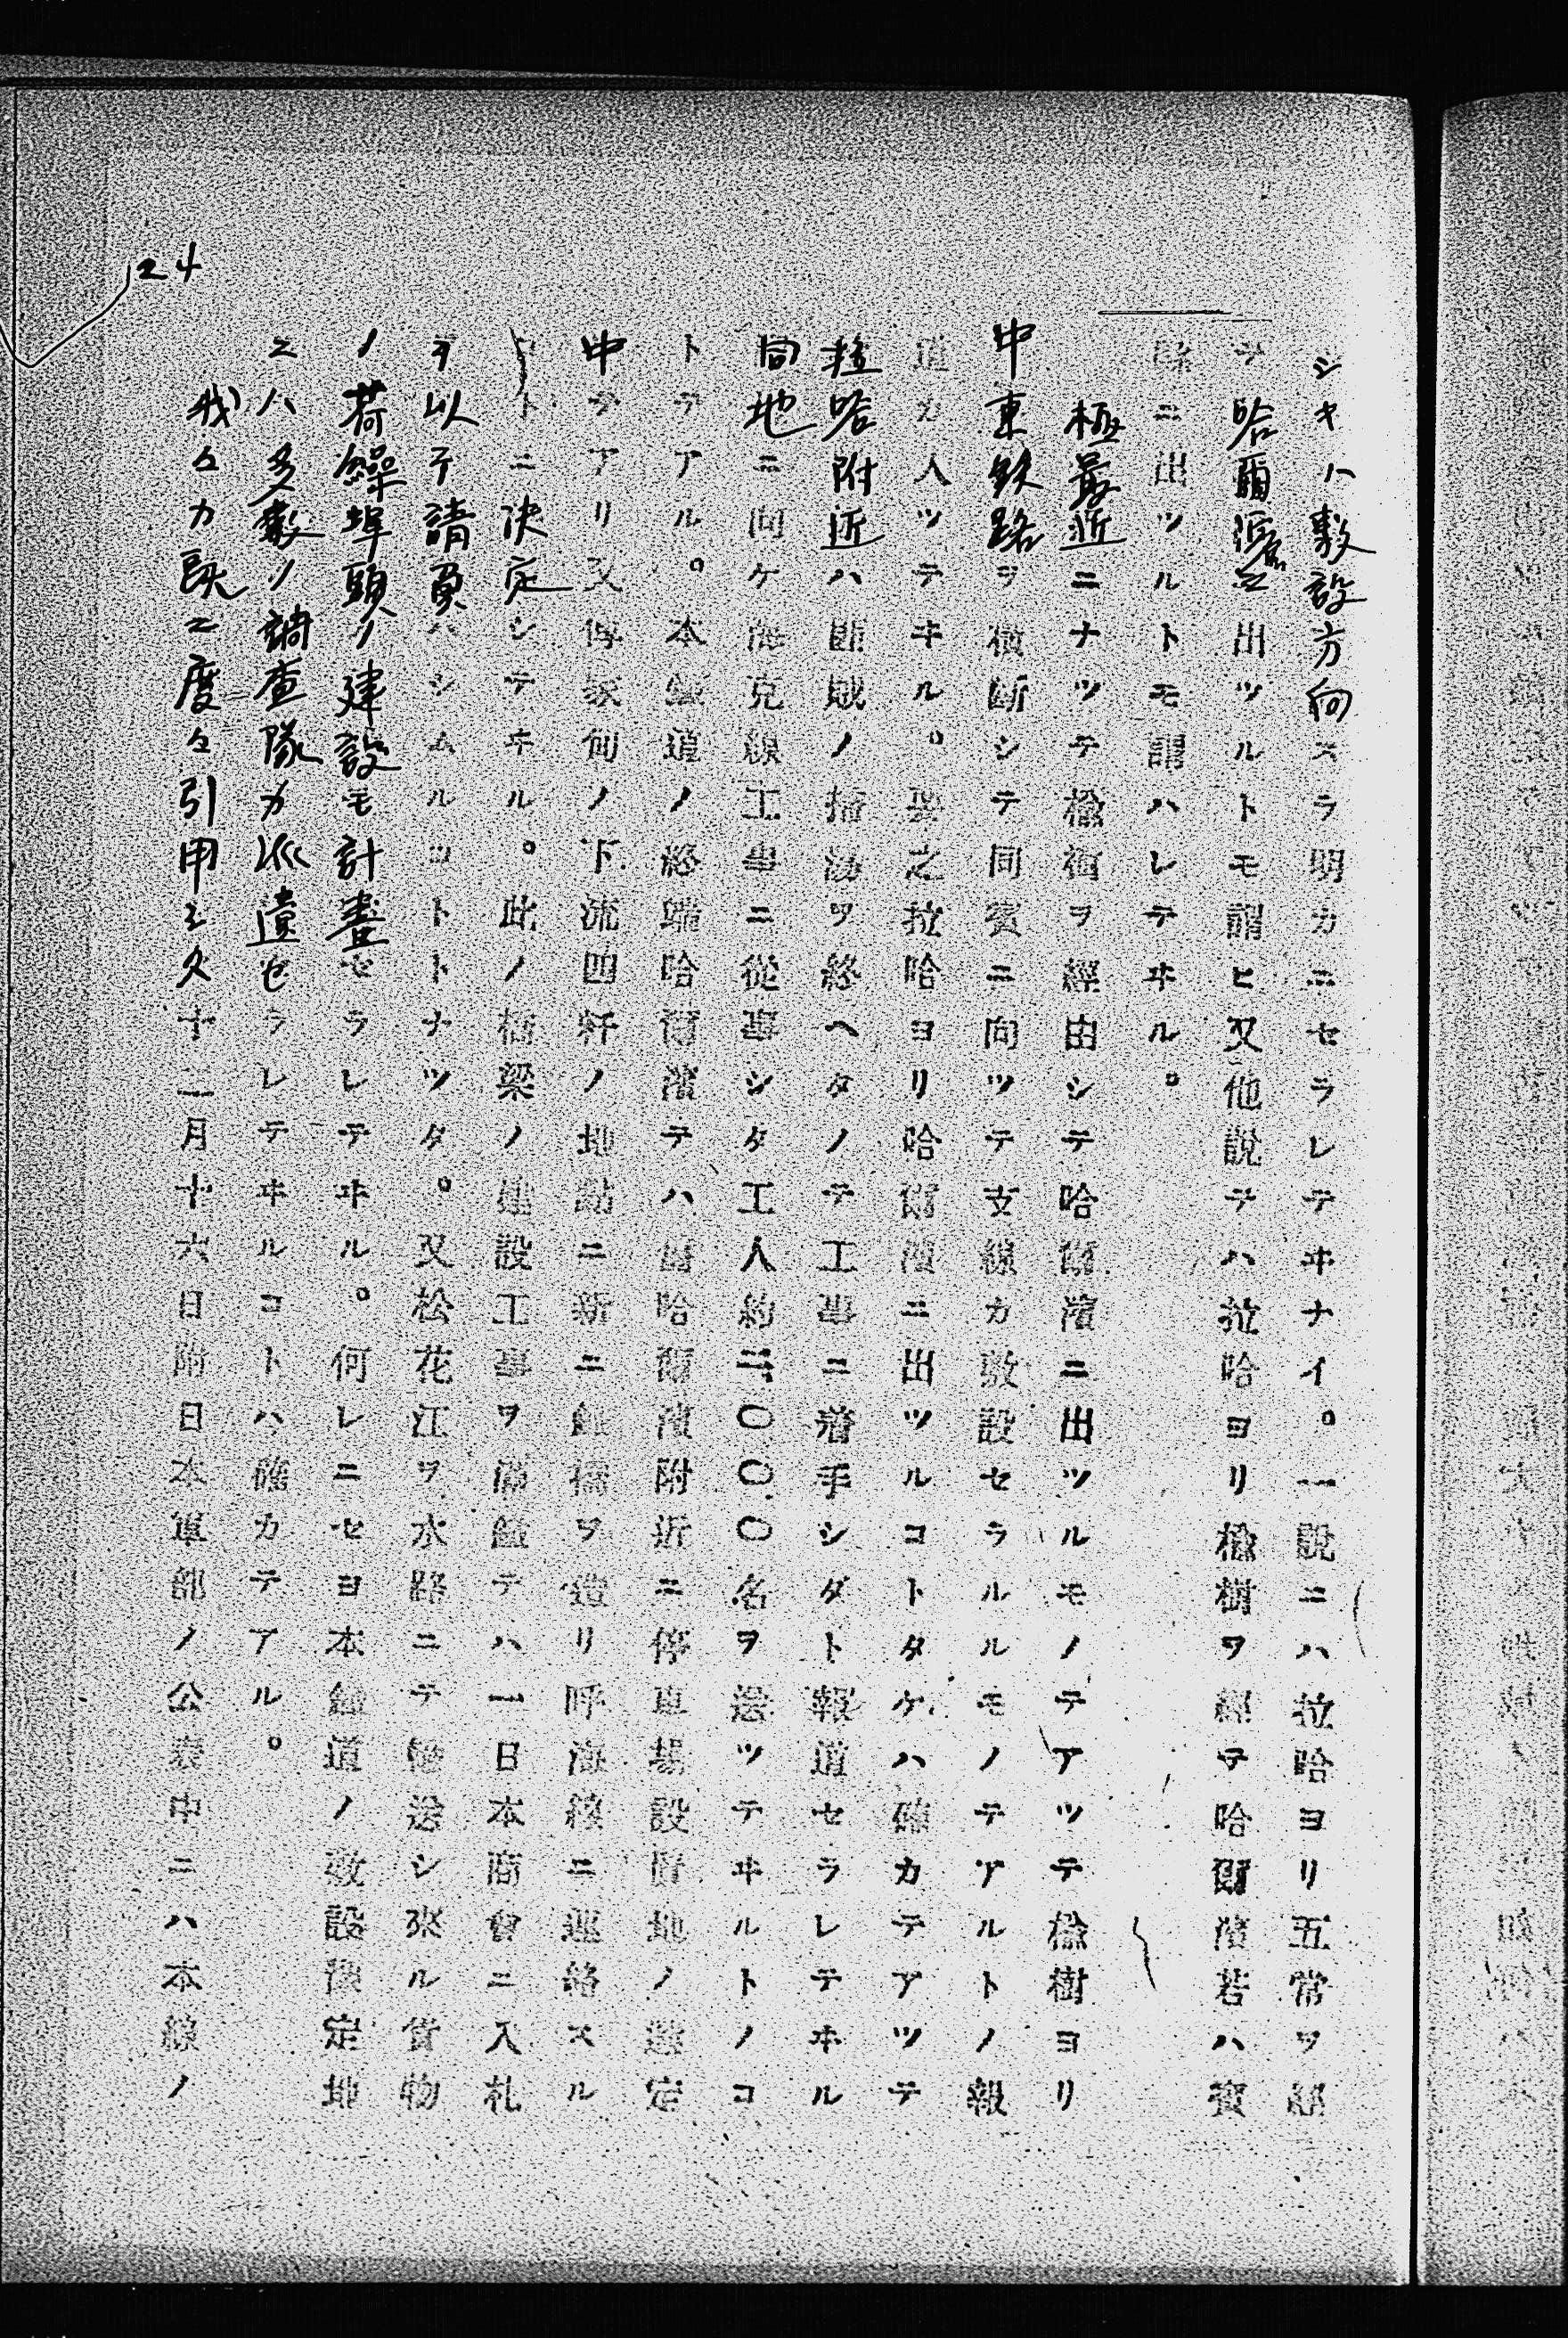 シキハ敷設方向スラ明カニセラレテヰナイ。一説ニハ拉哈ヨリ五常ヲ経
テ哈爾濱ニ出ツルトモ謂ヒ又他説テハ拉哈ヨリ楡樹ヲ經テ哈爾濱若ハ賓
縣ニ出ツルトモ謂ハレテヰル。
極最近ニナツテ楡樹ヲ經由シテ哈爾濱ニ出ツルモノテアツテ楡樹ヨリ
中東鉄路ヲ横斷シテ同賓ニ向ツテ支線カ敷設セラルルモノテアルトノ報
道カ入ツテヰル。要之拉哈ヨリ哈爾濱ニ出ツルコトタケハ確カテアツテ
拉哈附近ハ匪賊ノ掃蕩ヲ終ヘタノテ工事ニ着手シタト報道セラレテヰル
同地ニ向ケ海克線工事ニ從事シタ工人約二、〇〇〇名ヲ送ツテヰルトノコ
トテアル。本鐵道ノ終端哈爾濱テハ舊哈爾濱附近ニ停車場設備地ノ選定
中テアリ又傅家甸ノ下流四粁ノ地點ニ新ニ鐵橋ヲ造リ呼海線ニ連絡スル
コトニ決定シテヰル。此ノ橋梁ノ建設工事ヲ滿鐵テハ一日本商會ニ入札
ヲ以テ請負ハシムルコトトナツタ。又松花江ヲ水路ニテ輸送シ來ル貨物
ノ荷繰埠頭ノ建設モ計畫セラレテヰル。何レニセヨ本鐵道ノ敷設豫定地
ニハ多數ノ調査隊カ派遣セラレテヰルコトハ確カテアル。
我々カ既ニ度々引用シタ十二月十六日附日本軍部ノ公表中ニハ本線ノ
24